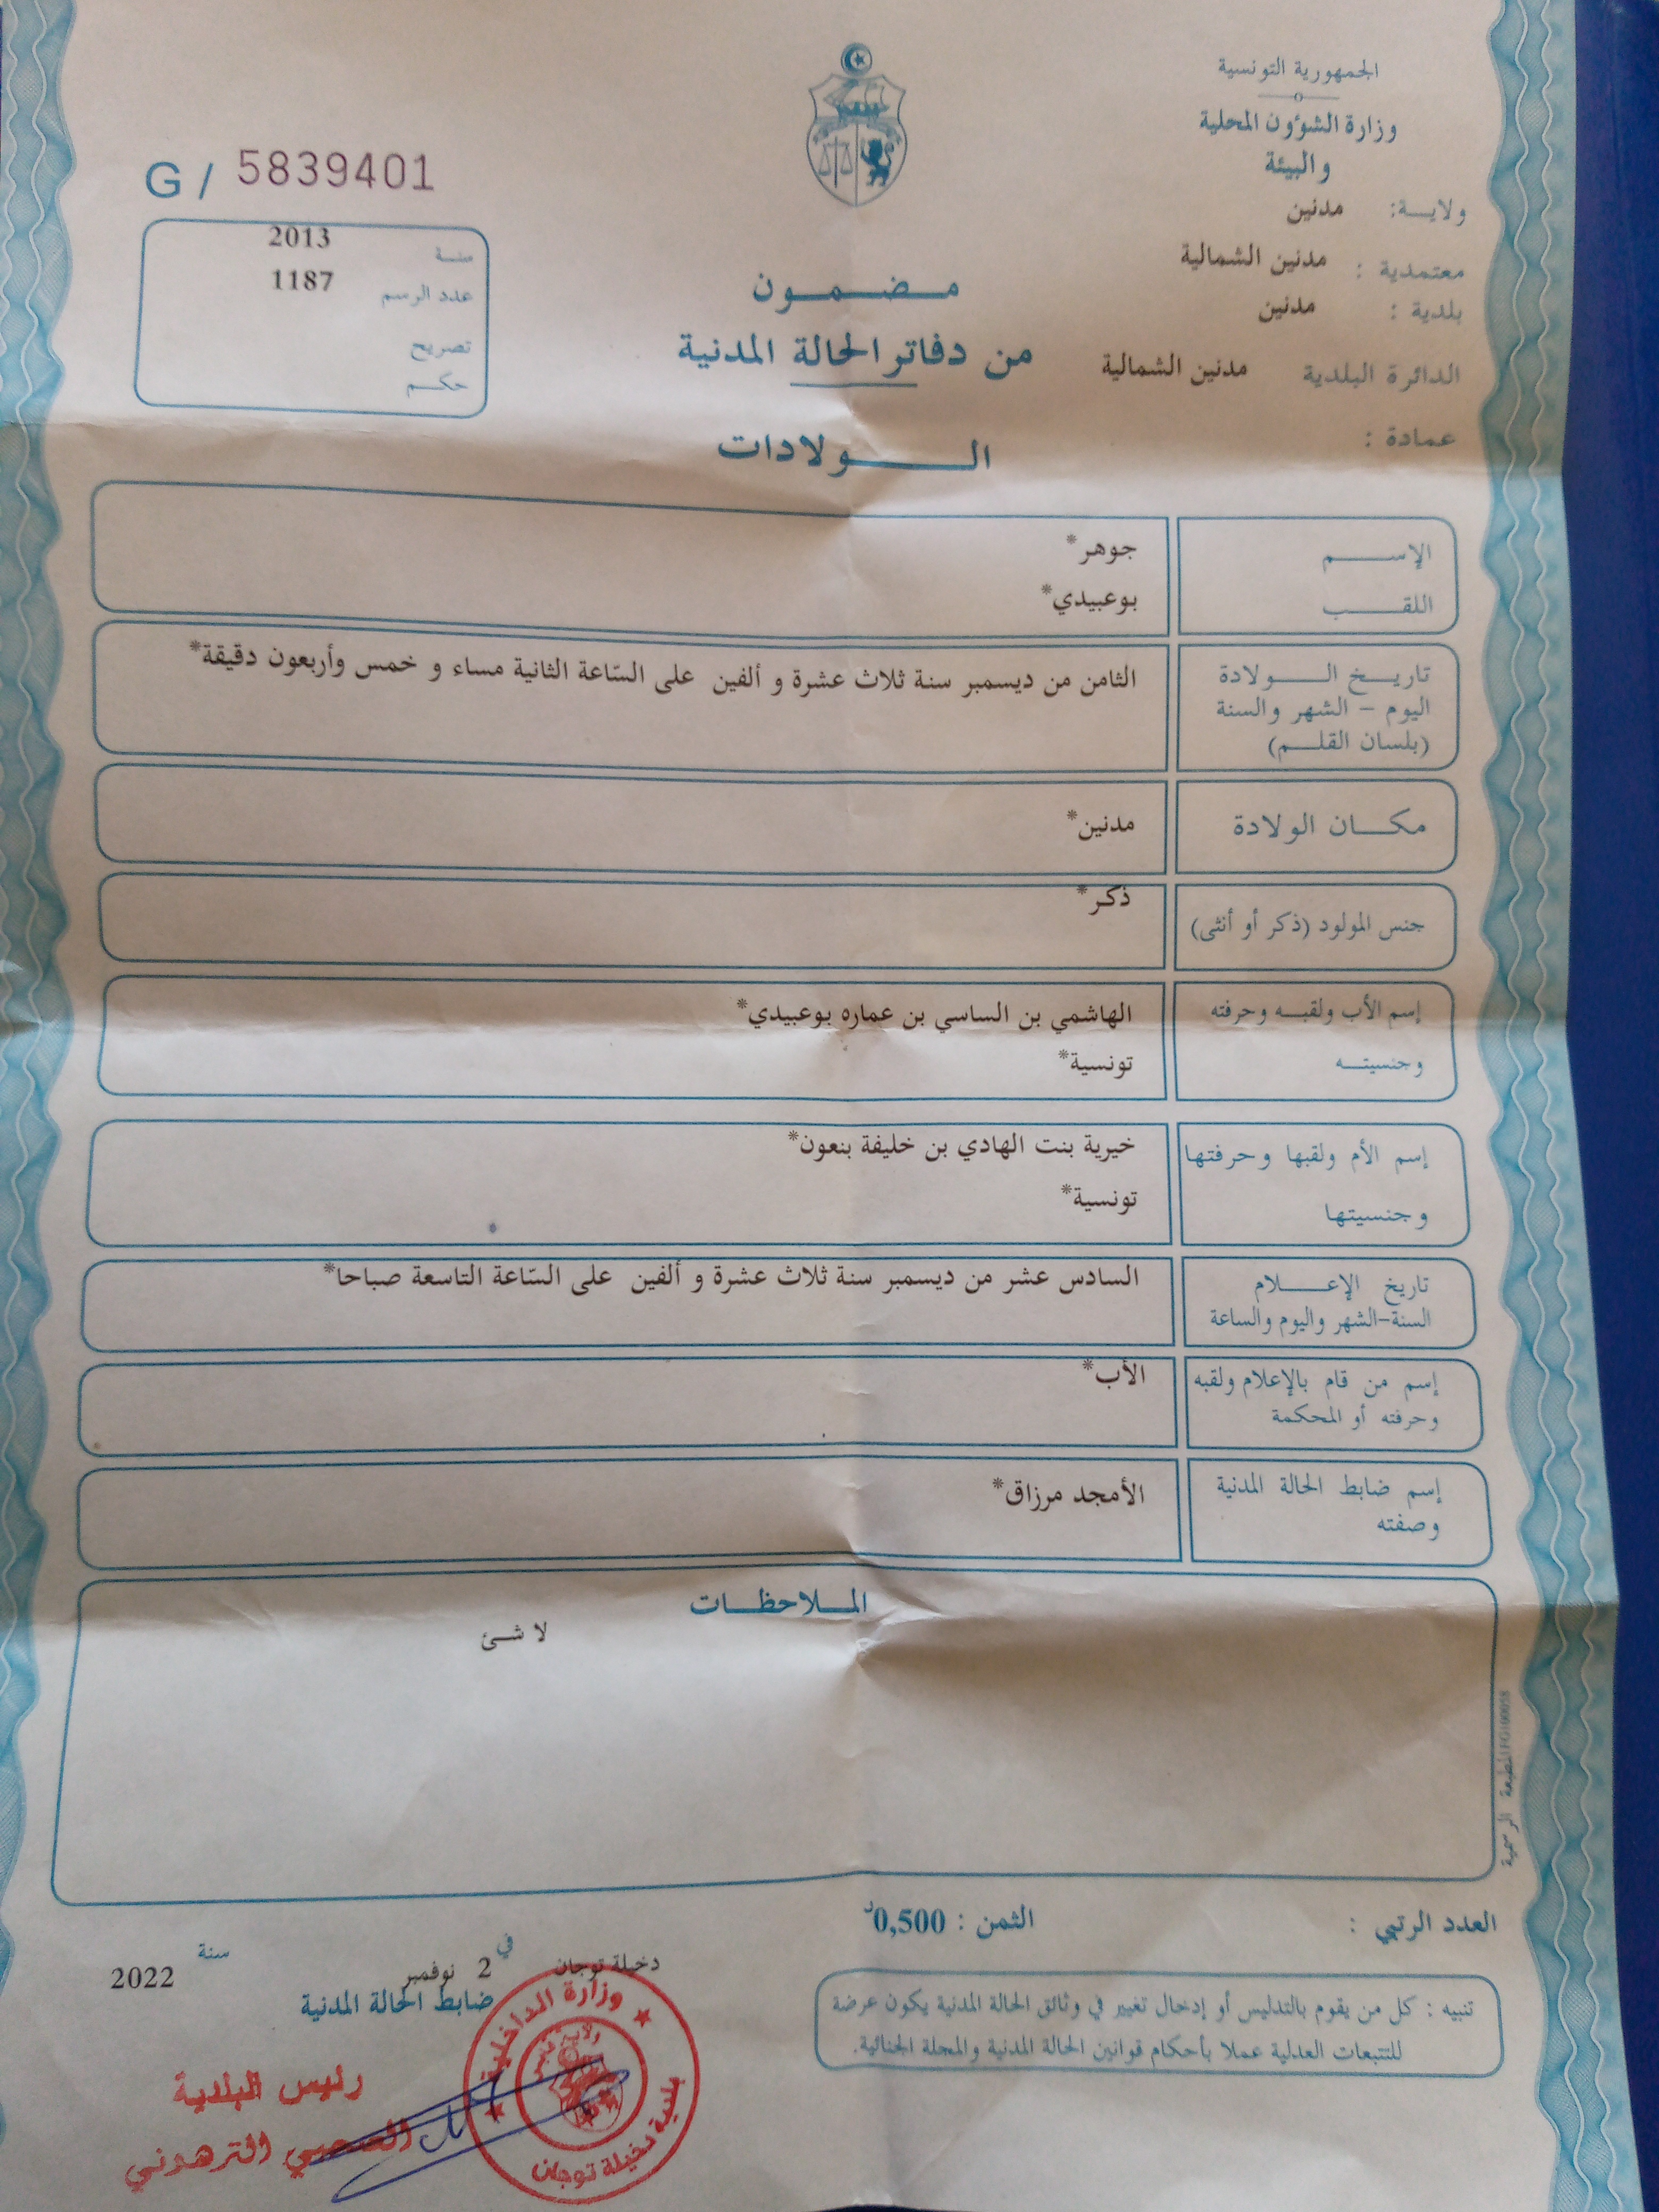 الجمهورية التونسية
وزارة الشؤون المحلية
والبيئة
ولايـــة: مدنين
معتمدية : مدنين الشمالية
بلدية : مدنين
الدائرة البلدية مدنين الشمالية
عمادة :
G / 5839401
سنـــة 2013
عدد الرسم 1187
تصريح
حكـــم
مـــضـــمـــون
من دفاتر الحالة المدنية
الـــولادات
الإســـم جوهر*
اللقـــب بوعبيدي*
تاريـــخ الـــولادة الثامن من ديسمبر سنة ثلاث عشرة و ألفين على السّاعة الثانية مساء و خمس وأربعون دقيقة*
اليوم - الشهر والسنة
(بلسان القلـــم)
مكـــان الولادة مدنين*
جنس المولود (ذكر أو أنثى) ذكر*
إسم الأب ولقبـــه وحرفته الهاشمي بن الساسي بن عماره بوعبيدي*
وجنسيتـــه تونسية*
إسم الأم ولقبها وحرفتها خيرية بنت الهادي بن خليفة بنعون*
وجنسيتها تونسية*
تاريخ الإعـــلام السادس عشر من ديسمبر سنة ثلاث عشرة و ألفين على السّاعة التاسعة صباحا*
السنة-الشهر واليوم والساعة
إسم من قام بالإعلام ولقبه الأب*
وحرفته أو المحكمة
إسم ضابط الحالة المدنية الأمجد مرزاق*
وصفته
المـــلاحظـــات
لا شئ
المطبعة الرسمية
العدد الرتبي : الثمن : 0,500د
تنبيه : كل من يقوم بالتدليس أو إدخال تغيير في وثائق الحالة المدنية يكون عرضة
للتتبعات العدلية عملا بأحكام قوانين الحالة المدنية والمجلة الجنائية.
دخيلة توجان في 2 نوفمبر سنة 2022
ضابط الحالة المدنية
وزارة الداخلية
ولاية قابس
بلدية دخيلة توجان
رئيس البلدية
الصحبي الترهوني